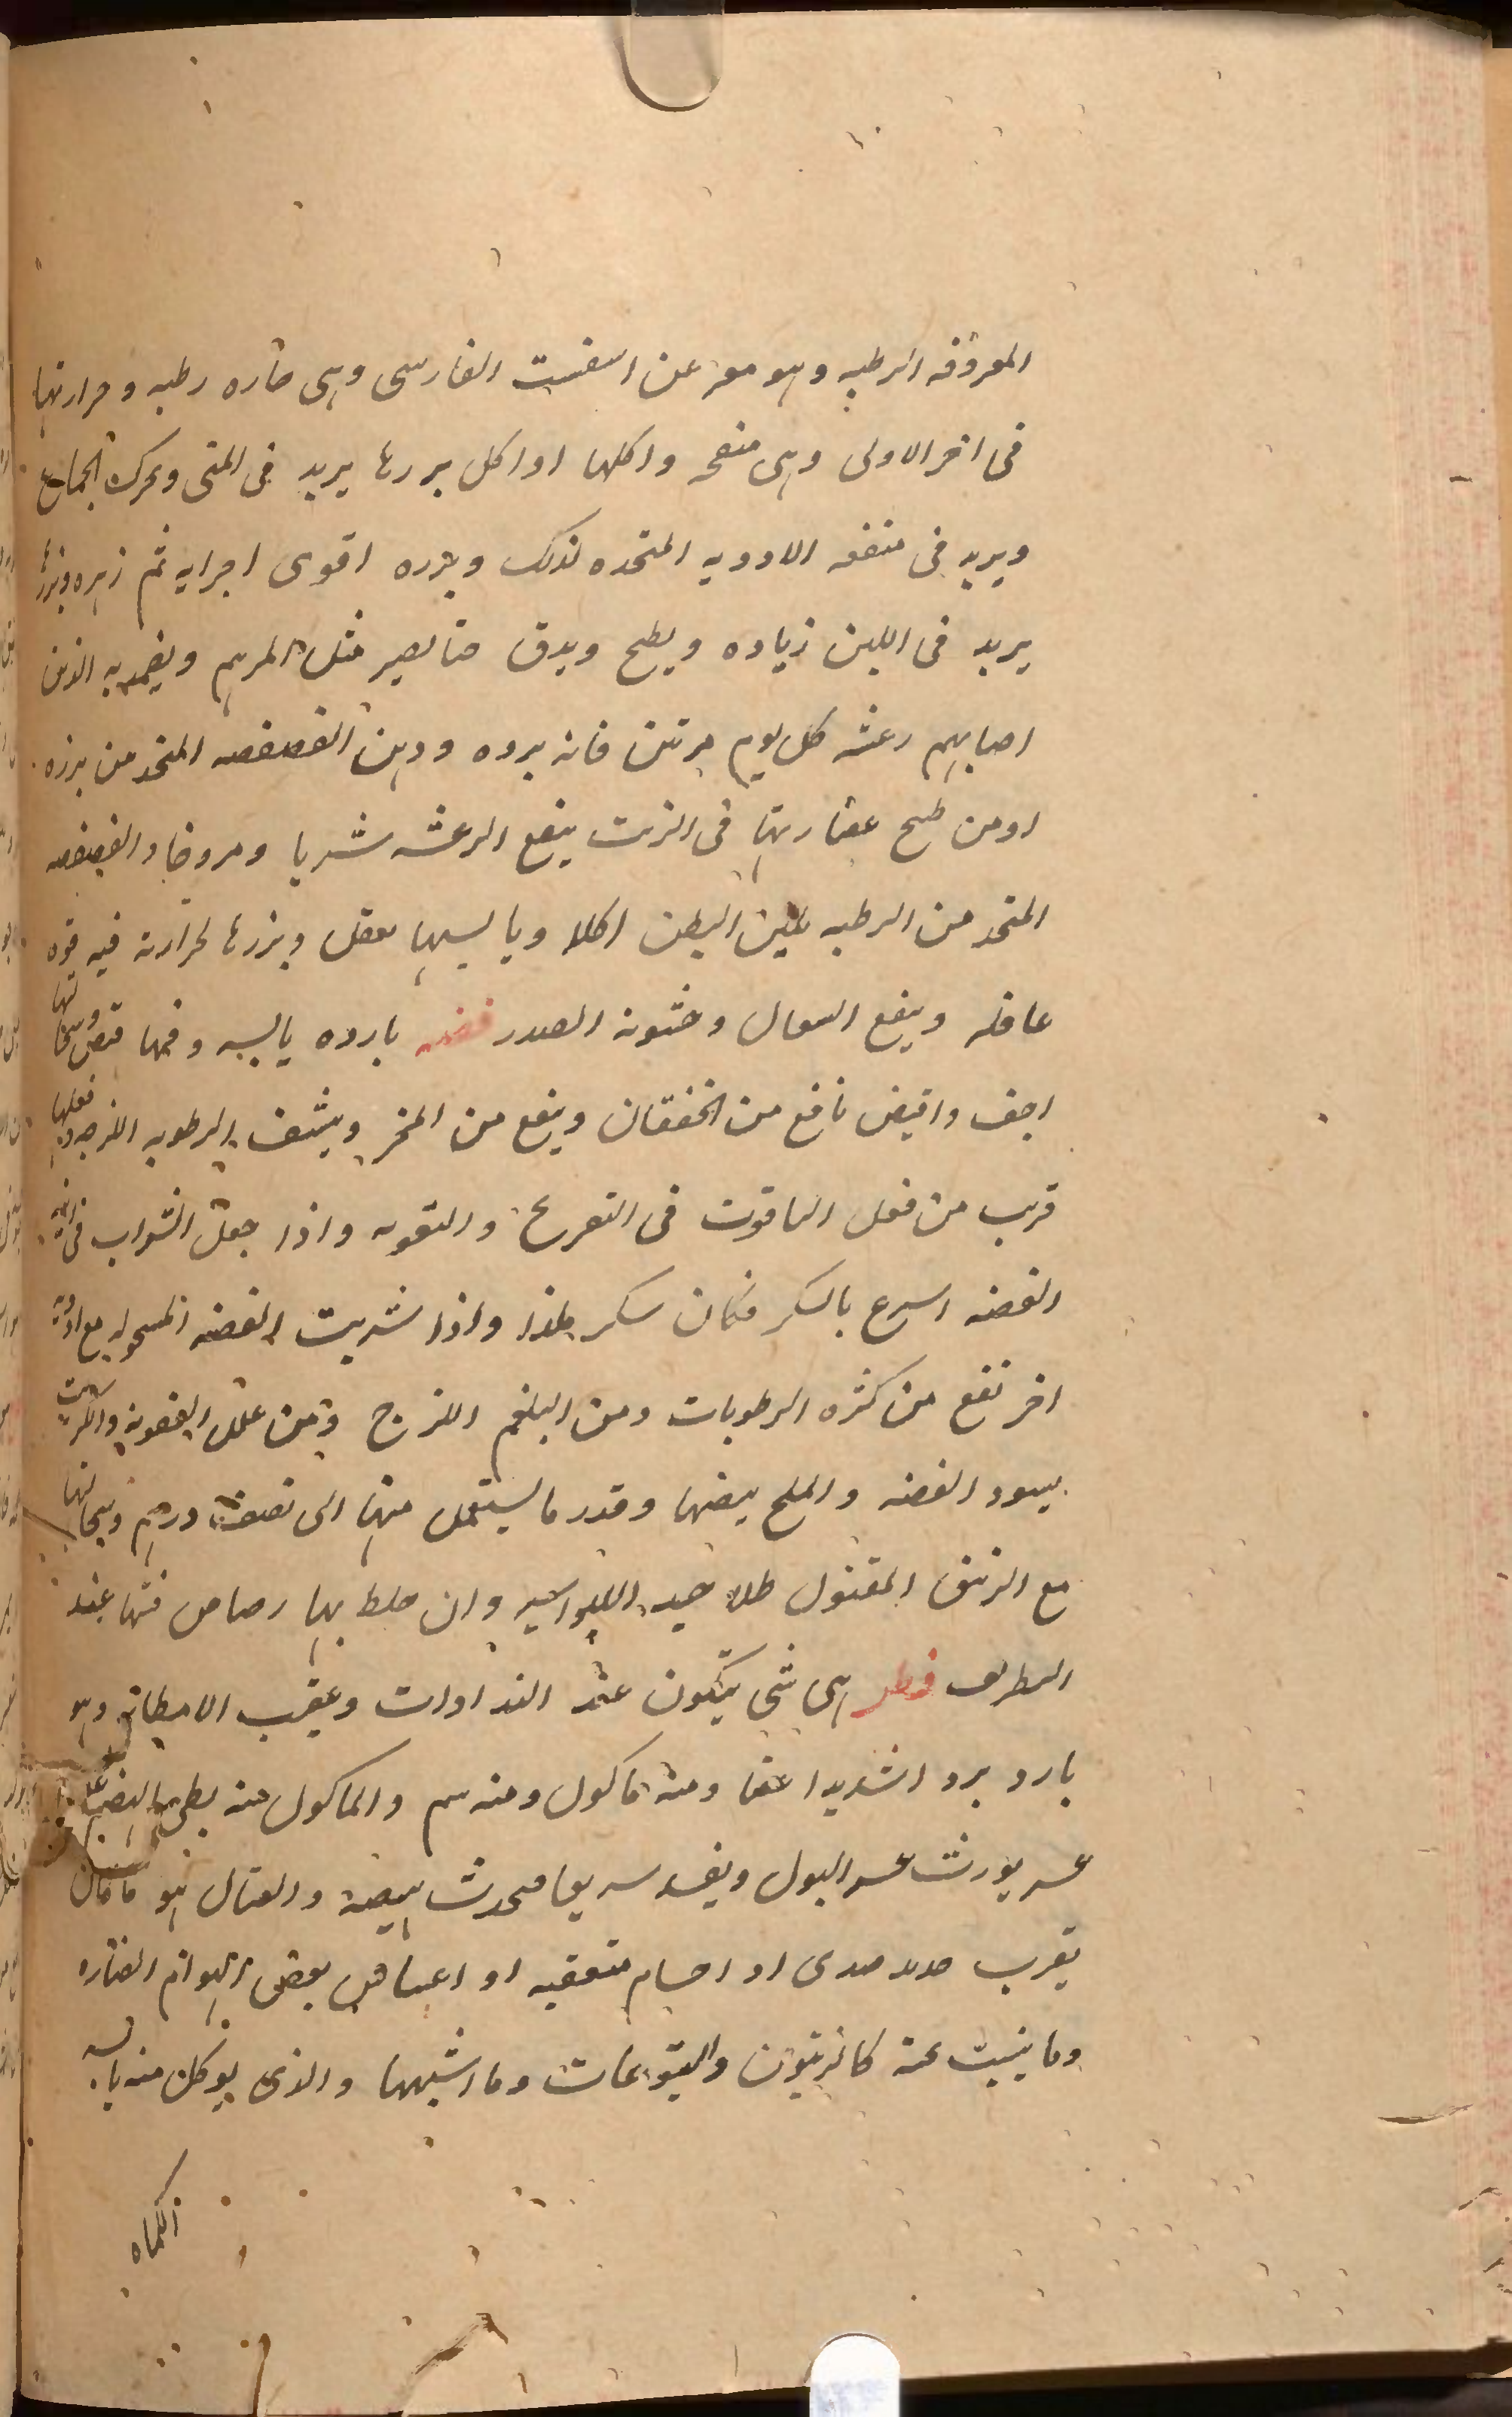 المعروفه الرطبه وهو معر عن اسفست الفارسى وهى حاره رطبه وحرارتها
فى اخر الاولى وهى منفخه واكلها او اكل بزرها يزيد فى المنى ويحرك الجماع
ويزيد فى منفعه الادويه المتخده لذلك وبزره اقوى اجزايه ثم زهره وبزرها
يزيد فى اللبن زياده ويطبخ ويدق حتا يصير مثل المرهم ويضمد به الذين
اصابهم رعشه كل يوم مرتين فانه يرده ودهن الفصفصه المتخد من بزره
اومن طبخ عصارتها فى الزيت ينفع الرعشه شربا ومروخا والفصفصه
المتخد من الرطبه يلين البطن اكلا ويابسها يعقل وبزرها لحرارته فيه قوه
عاقله وينفع السعال وخشونه الصدر فضه بارده يابسه وفيها قبض وسحالتها
اجف واقبض نافع من الخفقان وينفع من البخر وينشف الرطوبه اللزجه وفعلها
قريب من فعل الياقوت فى التفريح والتقويه واذا جعل الشراب فى انيه
الفضه اسرع بالسكر فكان سكر لذيذا واذا شربت الفضه المسحوله مع ادويه
اخر نفع من كثره الرطوبات ومن البلغم اللزج ومن علل العفونه والكبريت
يسود الفضه والملح يبيضها وقدر ما يستعمل منها الى نصف درهم وسحالتها
مع الزيبق المقتول طلا جيد للبواسير وان خلط بها رصاص فتها عند
المطرق فطر هى شى يتكون عند النداوات وعقيب الامطار وهو
بارد بردا شديدا عفنا ومنه ماكول ومنه سم والماكول منه بطى الهضم
عسر يورث عسر البول ويفسد سريعا فيحدث هيضه والقتال هو ما كان
بقرب حديد صدى او اجسام متعفنه او اعشاش بعض الهوام الضاره
وما ينبت عند كالزيتون واليتوعات وما اشبهها والذى يوكل منه يابسه
الكماه